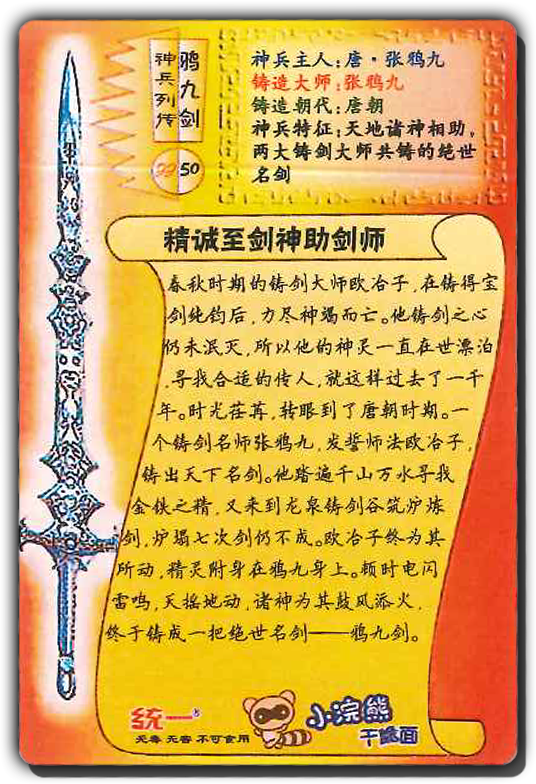 神兵列传
鸦九剑
50
神兵主人：唐·张鸦九
铸造大师：张鸦九
铸造朝代：唐朝
神兵特征：天地诸神相助，
两大铸剑大师共铸的绝世
名剑
精诚至剑神助剑师
春秋时期的铸剑大师欧冶子，在铸得宝
剑纯钧后，力尽神竭而亡。他铸剑之心
仍未泯灭，所以他的神灵一直在世漂泊
，寻找合适的传人，就这样过去了一千
年。时光荏苒，转眼到了唐朝时期。一
个铸剑名师张鸦九，发誓师法欧冶子，
铸出天下名剑。他踏遍千山万水寻找
金铁之精，又来到龙泉铸剑谷筑炉炼
剑，炉塌七次剑仍不成。欧冶子终为其
所动，精灵附身在鸦九身上。顿时电闪
雷鸣，天摇地动，诸神为其鼓风添火，
终于铸成一把绝世名剑——鸦九剑。
统一®
无毒 无害 不可食用
小浣熊
干脆面